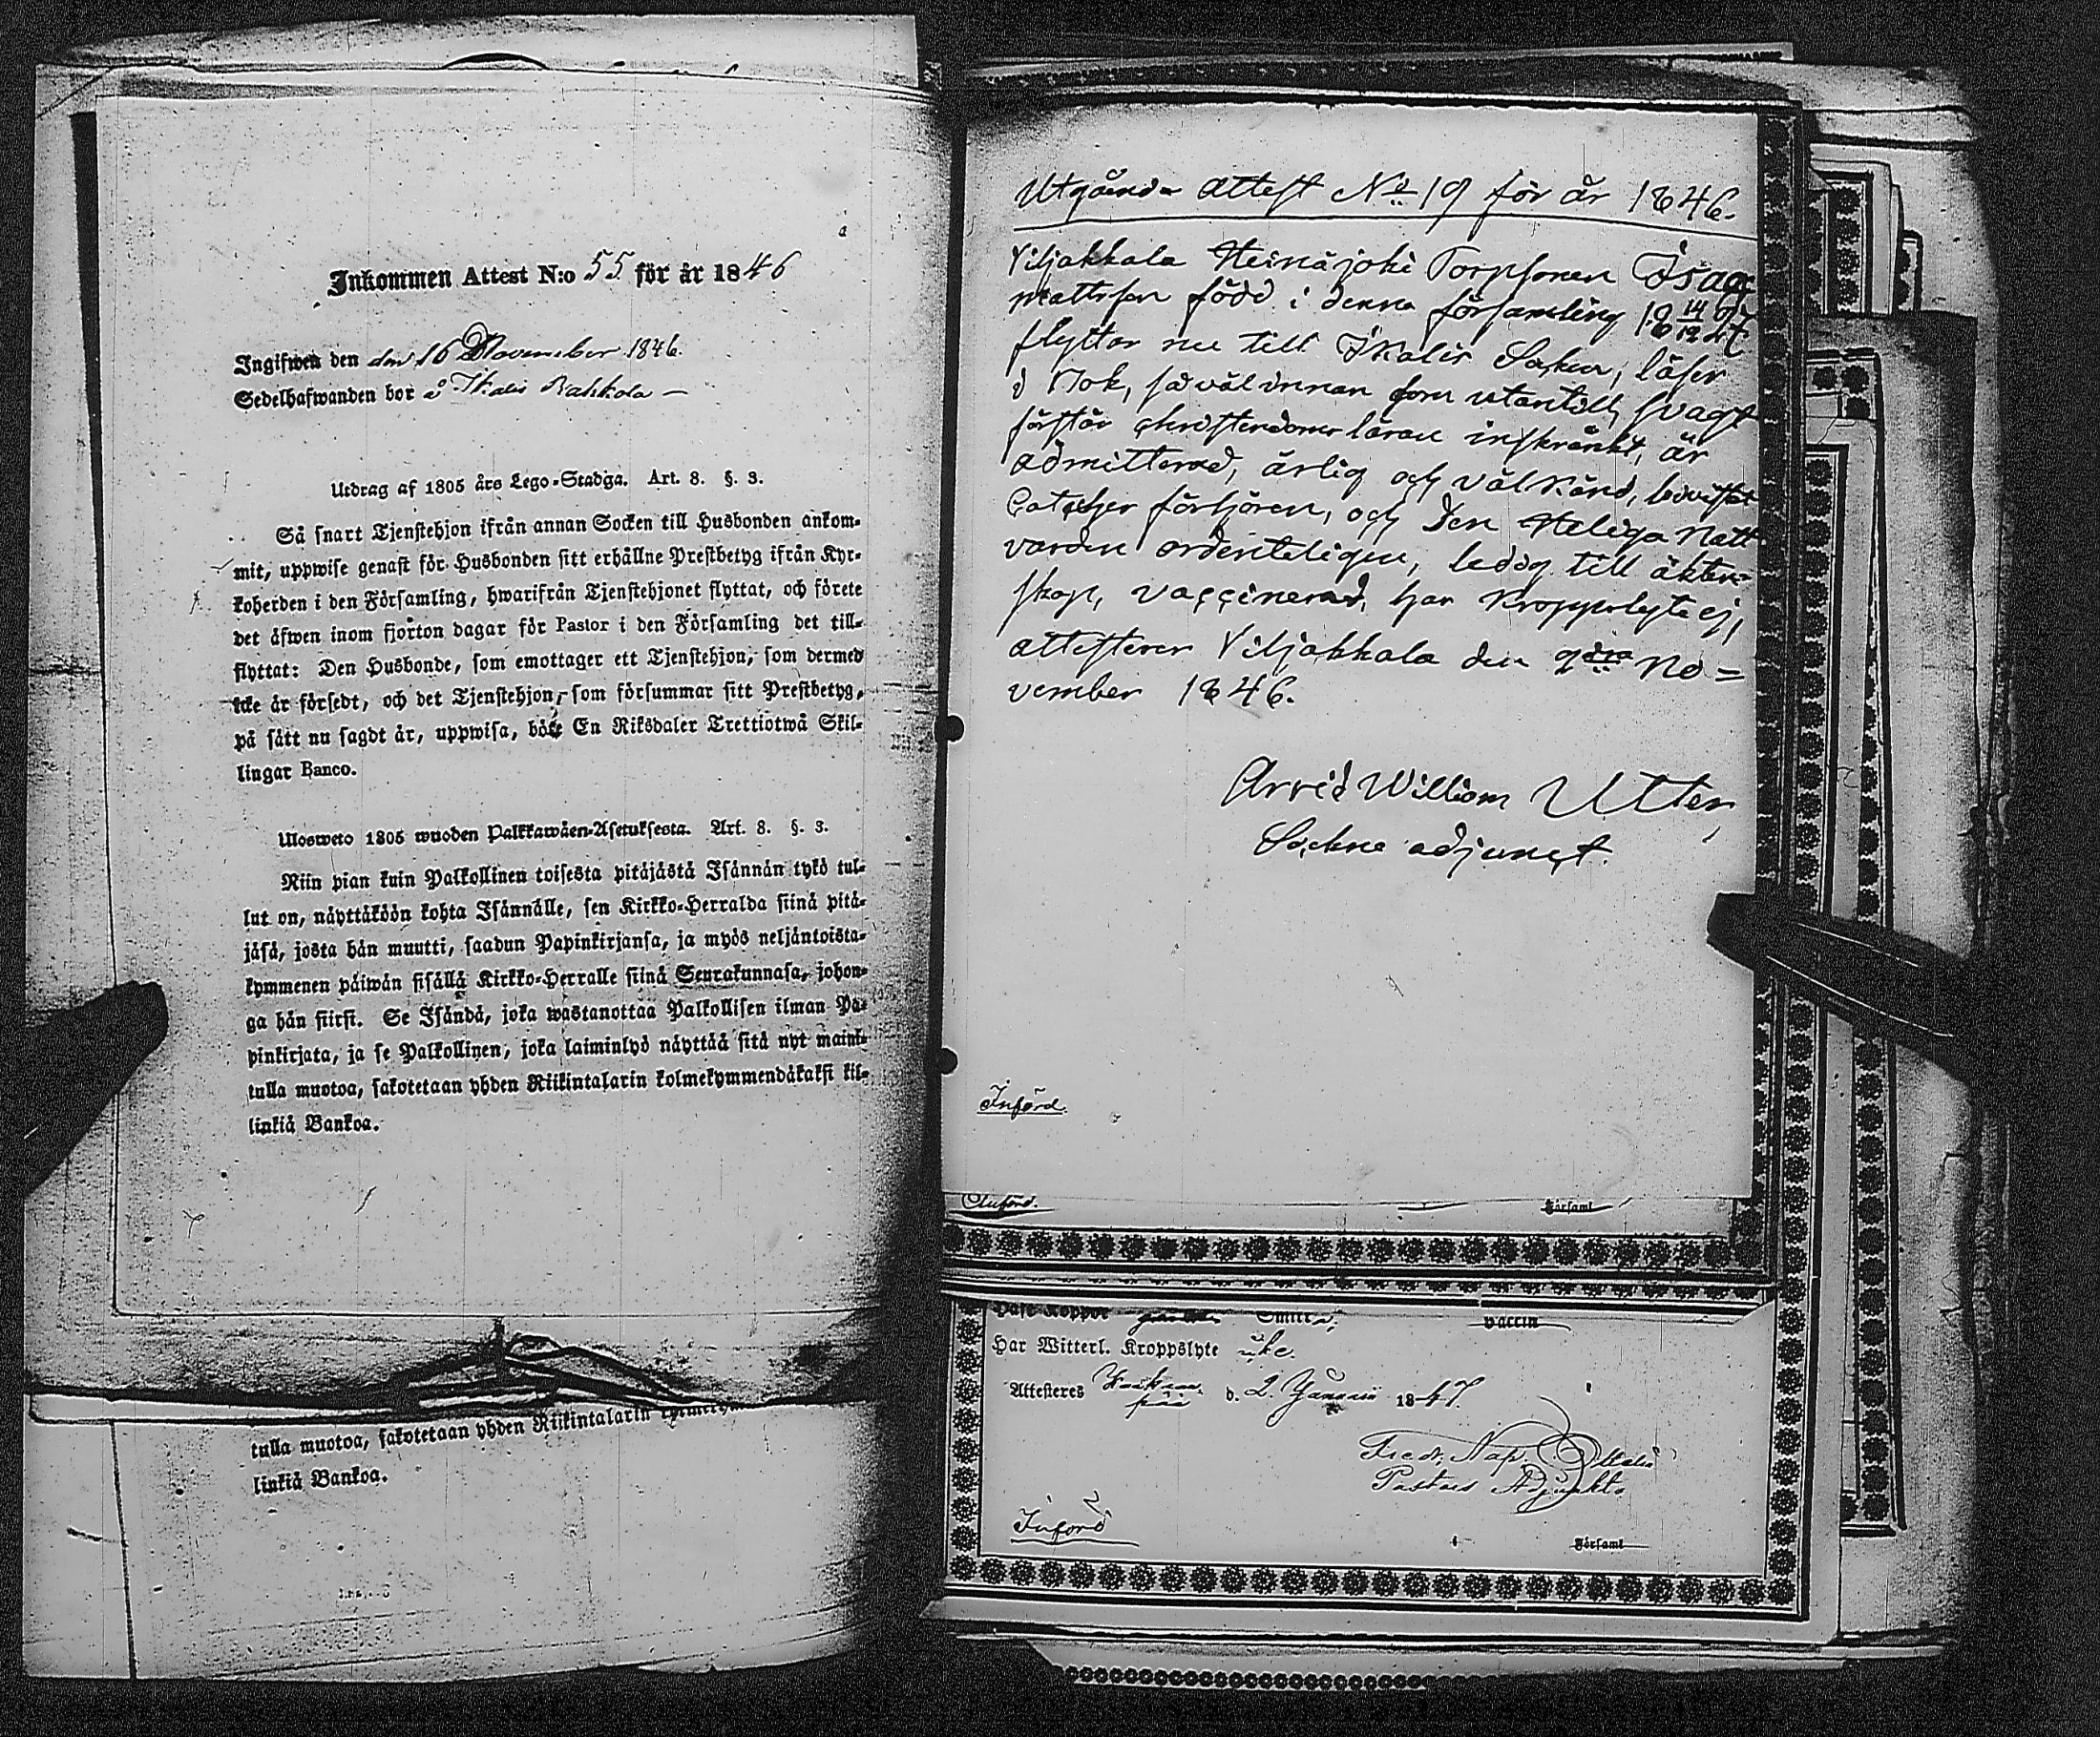 Inkommen Attest N:o 55 för år 1846
Ingifwen den den 16 November 1846.
Sedelhafwanden bor å Ikalis Rahkola —
Utdrag af 1805 års Lego-Stadga. Art. 8. §. 3.
Så snart Tjenstehjon ifrån annan Socken till Husbonden ankom-
mit, uppwise genast för Husbonden sitt erhållne Prestbetyg ifrån Kyr-
koherden i den Församling, hwarifrån Tjenstehjonet flyttat, och förete
det äfwen inom fjorton dagar för Pastor i den Församling det till-
flyttat: Den Husbonde, som emottager ett Tjenstehjon, som dermed
icke är försedt, och det Tjenstehjon, som försummar sitt Prestbetyg,
på sätt nu sagdt är, uppwisa, böte En Riksdaler Trettiotwå Skil-
lingar Banco.
Ulosweto 1805 wuoden Palkkawäen-Asetuksesta. Art. 8. §. 3.
Niin pian kuin Palkollinen toisesta pitäjästä Isännän tykö tul-
lut on, näyttäköön kohta Isännälle, sen Kirkko-Herralda siinä pitä-
jäsä, josta hän muutti, saadun Papinkirjansa, ja myös neljäntoista-
kymmenen päiwän sisällä Kirkko-Herralle siinä Seurakunnasa, johon-
ga hän siirsi. Se Isändä, joka wastanottaa Palkollisen ilman Pa-
pinkirjata, ja se Palkollinen, joka laiminlyö näyttää sitä nyt maini-
tulla muotoa, sakotetaan yhden Riikintalarin kolmekymmendäkaksi kil-
linkiä Bankoa.
tulla muotoa, sakotetaan yhden Riikintalarin
linkiä Bankoa.
Utgående attest No 19 för år 1846.
Viljakkala Heinäjoki Torpsonen Isac
Mattsson född i denna församling 18 14/12 27
flyttar nu till Ikalis Socken, läser
i bok, såväl innan som utantill, svagt
förstår christendoms läran inskränkt, är
admitterad, ärlig och välkänd, bevistat
Catecher förhören, och Den Heliga Natt
varden ordenteligen, ledig till äkten-
skap, vaccinerad, har kroppslyte ej,
attesterar Viljakkala den 9de No=
vember 1846.
Arvid William Utter,
Sockne adjunct.
Införd.
Införd.
Församl
Haft Koppor Smitt
Vaccin
Har Witterl. Kroppslyte icke.
Attesteres d. 2 Januari 1847.
Fredr. Nap.
Pastors Adjunkt.
Införd
Församl